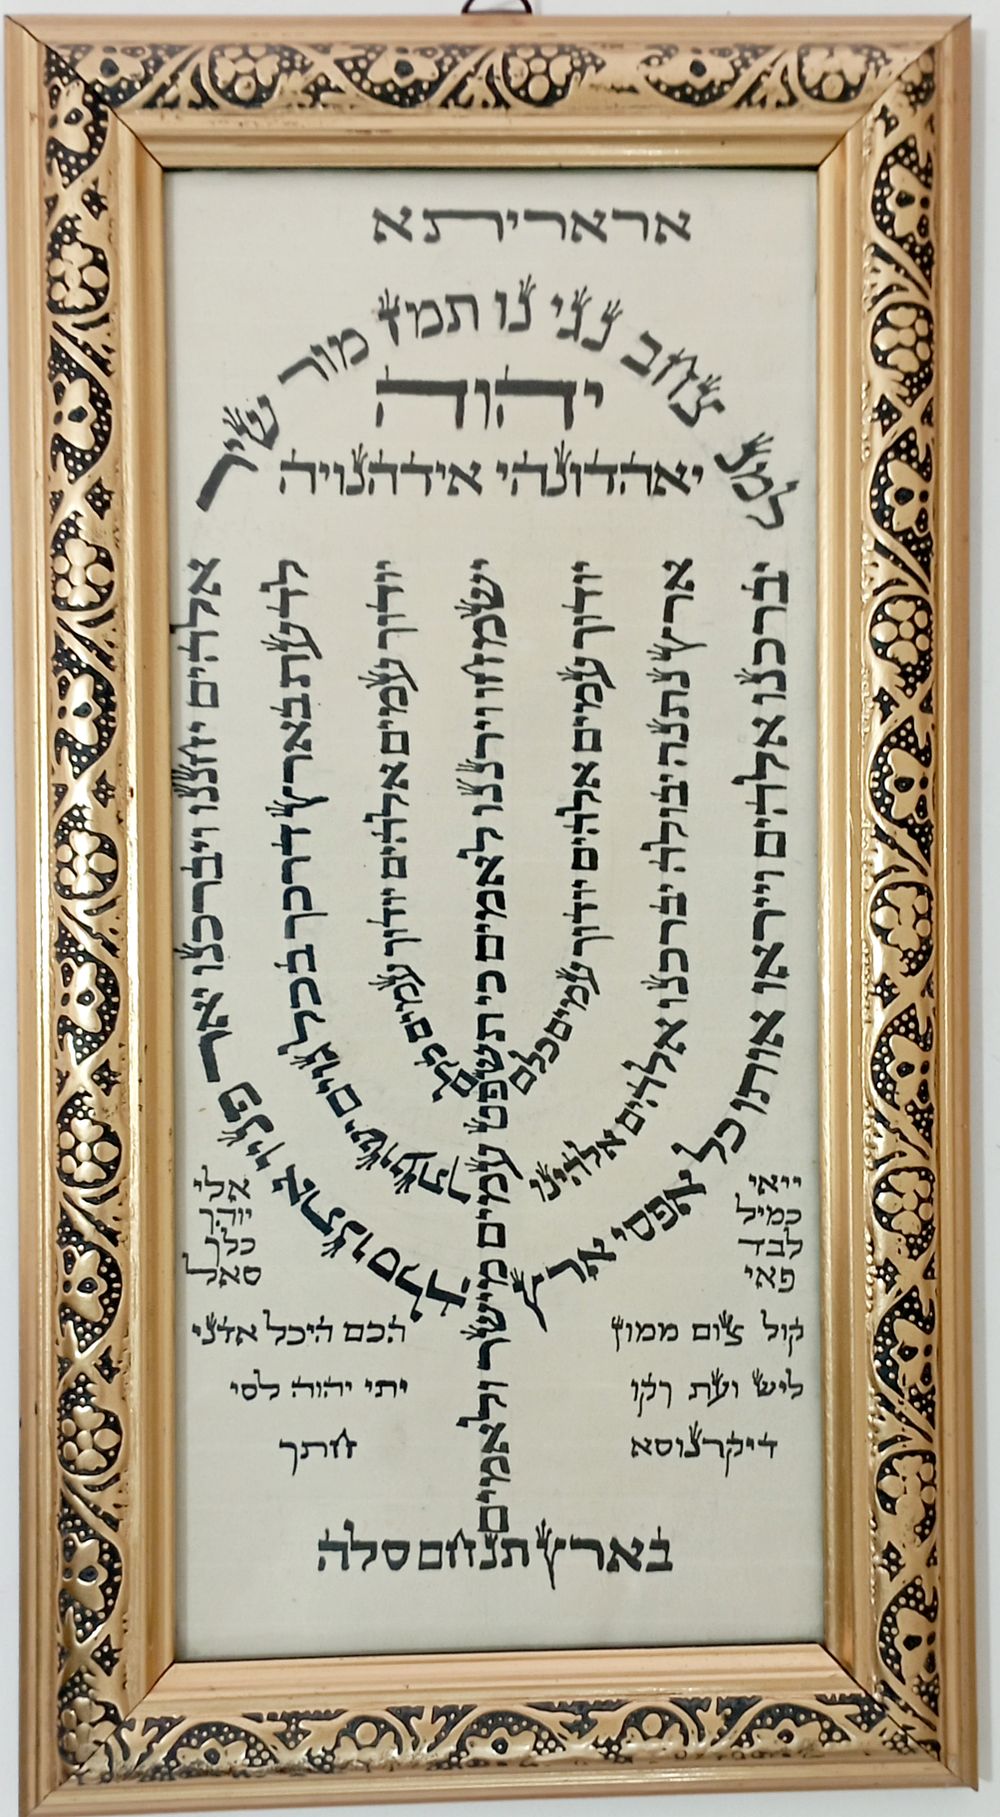 אראריתא
למנ צחב נגי נו תמז מור שיר
יהוה
יאהדונהי אידהנויה
אלהים יחננו ויברכנו יאר פניו אתנו סלה
לדעת בארץ דרכך בכל גוים ישועתך
יודוך עמים אלהים יודוך עמים כלם
ישמחו וירננו לאמים כי תשפט עמים מישר ולאמים
בארץ תנחם סלה
יודוך עמים אלהים יודוך עמים כלם
ארץ נתנה יבולה יברכנו אלהים אלהינו
יברכנו אלהים וייראו אותו כל אפסי ארץ
ייאי
כמיל
לבד
פאי
אלי
יוהך
כלך
סאל
קול צום ממון
הכם היכל אדני
ליש ועת ךקו
יתי יהוה לסי
דיקרנוסא
חתך